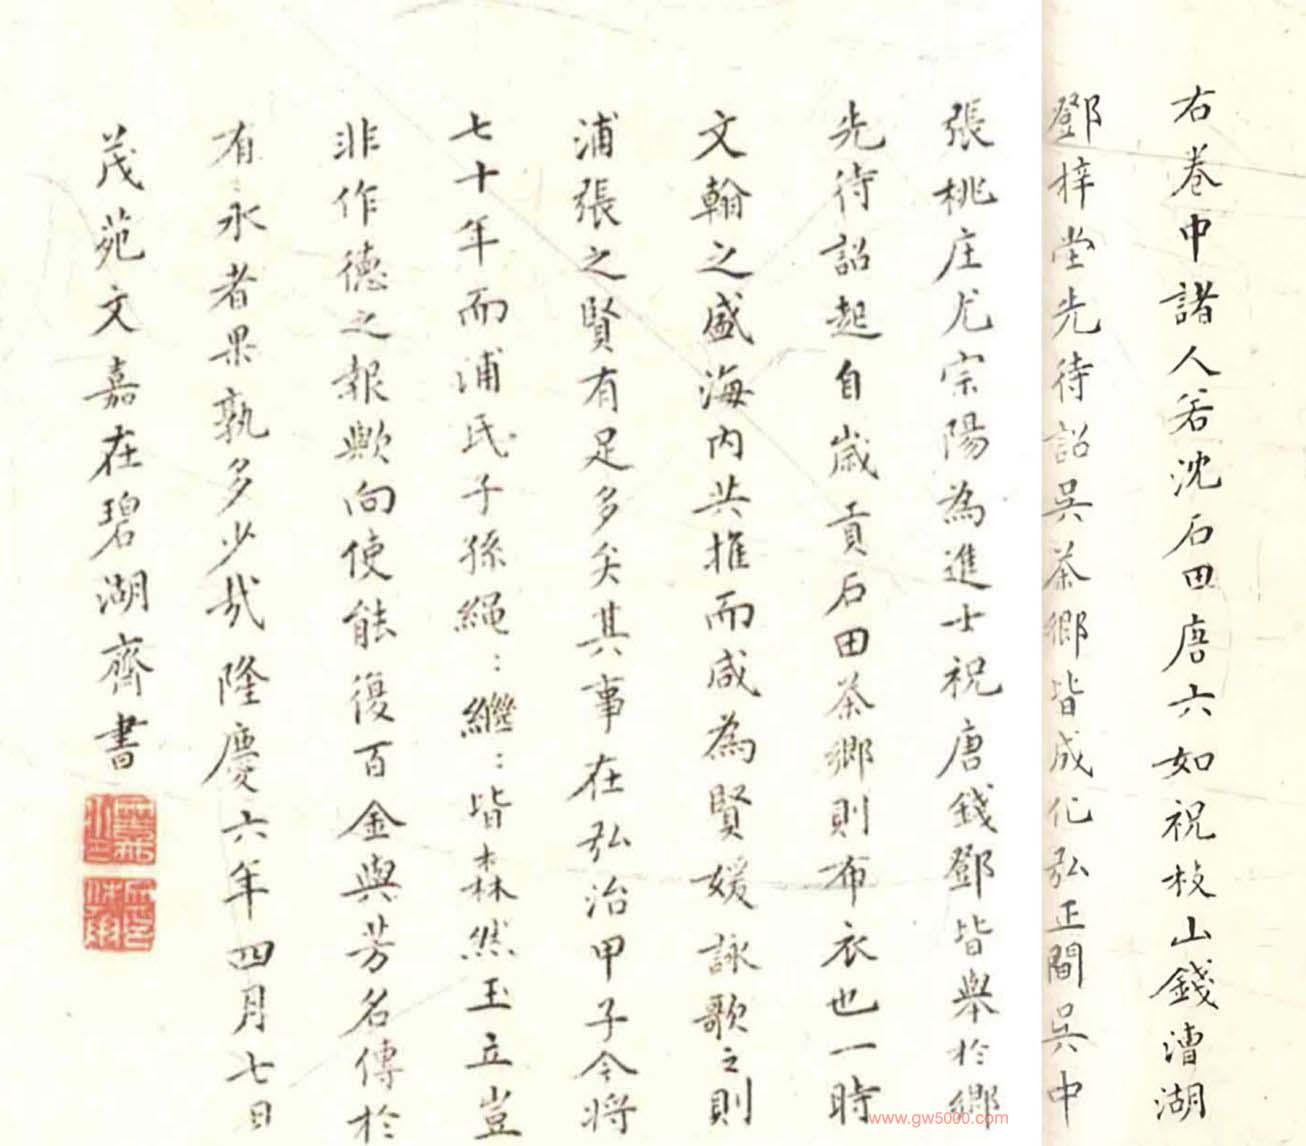 右卷中諸人若沈石田唐六如祝枝山錢漕湖
鄧梓堂先待詔吳茶鄉皆成化弘正間吳中
張桃庄尤宗陽為進士祝唐錢鄧皆舉於鄉
先待詔起自歲貢石田茶鄉則布衣也一時
文翰之盛海内共推而咸為賢媛詠歌之則
浦張之賢有足多矣其事在弘治甲子今將
七十年而浦氏子孫繩:繼:皆森然玉立豈
非作德之報歟向使能復百金與芳名傳於
有永者果孰多少哉隆慶六年四月七日
茂苑文嘉在碧湖齋書
www.gw5000.com